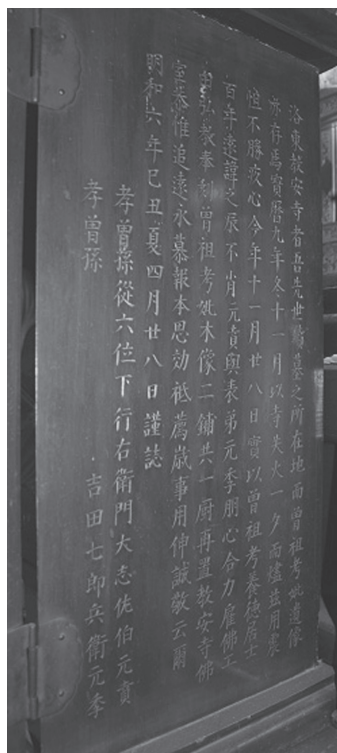 洛東教安寺者吾先世墳墓之所在地而曽祖考妣遺像
亦存焉寶曆九年冬十一月以寺失火一夕而燼茲用震
怛不勝疚心今年十一月廿八日實以曽祖考養德居士
百年遠諱之辰不肖元貴與表弟元季朋心合力雇佛工
弘教奉刻曽祖考妣木像二鋪共一厨再置教安寺佛
室恭惟追遠永慕報本思効祗薦歲事用伸誠敬云爾
明和六年巳丑夏四月廿八日謹誌
孝曽孫從六位下行右衛門大志佐伯元貴
孝曽孫 吉田七郎兵衛元季